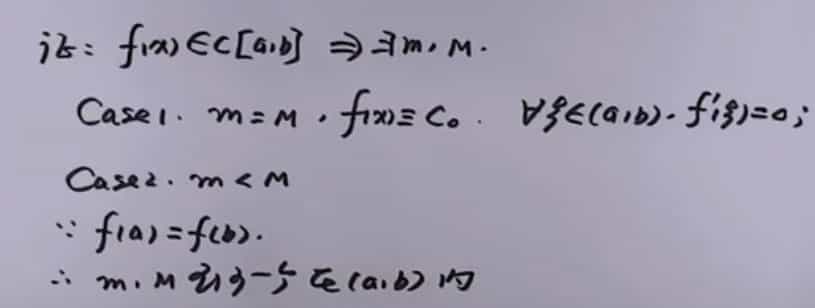 证: f(x)∈C[a,b] ⇒ ∃m, M.
Case1. m=M, f(x)≡C₀. ∀ξ∈(a,b). f'(ξ)=0;
Case2. m<M
∵ f(a)=f(b).
∴ m, M 至少一个在(a,b)内